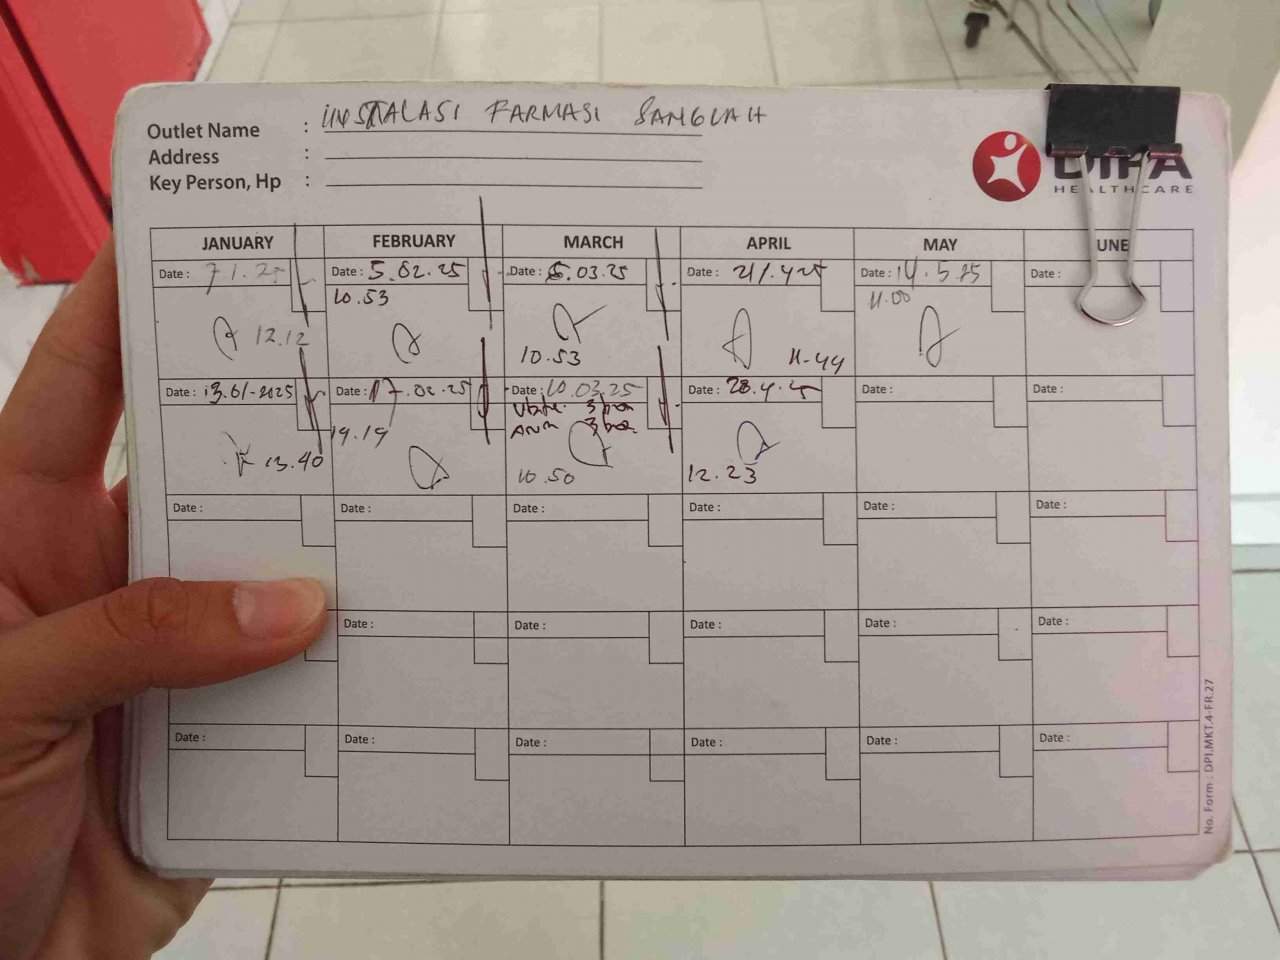 Outlet Name : INSTALASI FARMASI SANGLAH
Address :
Key Person, Hp :
DIPA
HEALTHCARE
JANUARY FEBRUARY MARCH APRIL MAY UNE
Date : 7 1. 25 Date : 5.02.25 Date : 6.03.25 Date : 21.4.25 Date : 14.5.25 Date :
10.53 11.00
12.12 10.53 11-44
Date : 13.01-2025 Date : 17.02.25 Date : 10.03.25 Date : 28.4.25 Date : Date :
13.40 10.50 12.23
Date : Date : Date : Date : Date : Date :
Date : Date : Date : Date : Date :
Date : Date : Date : Date : Date : Date :
No. Form : DPI.MKT.4-FR.27